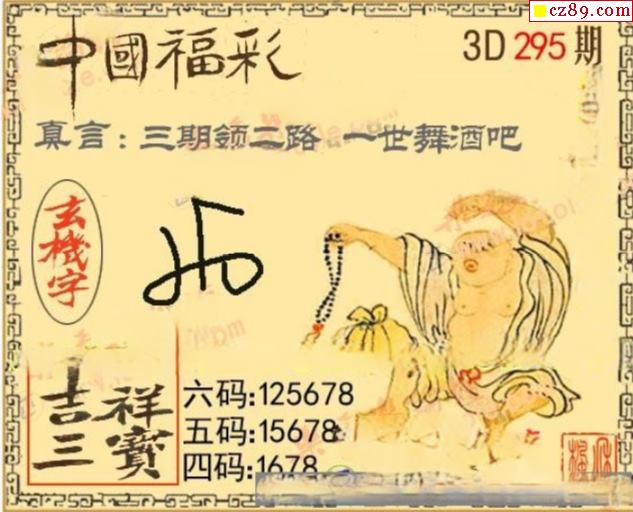 cz89.com
中國福彩
3D 295 期
真言：三期领二路 一世舞酒吧
玄機字
吉祥
三寶
六码:125678
五码:15678
四码:1678